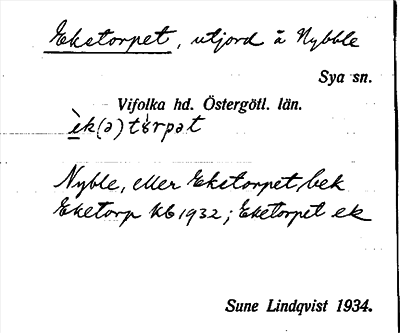 Eketorpet, utjord å Nybble
Sya sn.
Vifolka hd. Östergötl. län.
èk(ə)tɷrpət
Nyble, eller Eketorpet bek
Eketorp KB 1932; Eketorpet ek
Sune Lindqvist 1934.